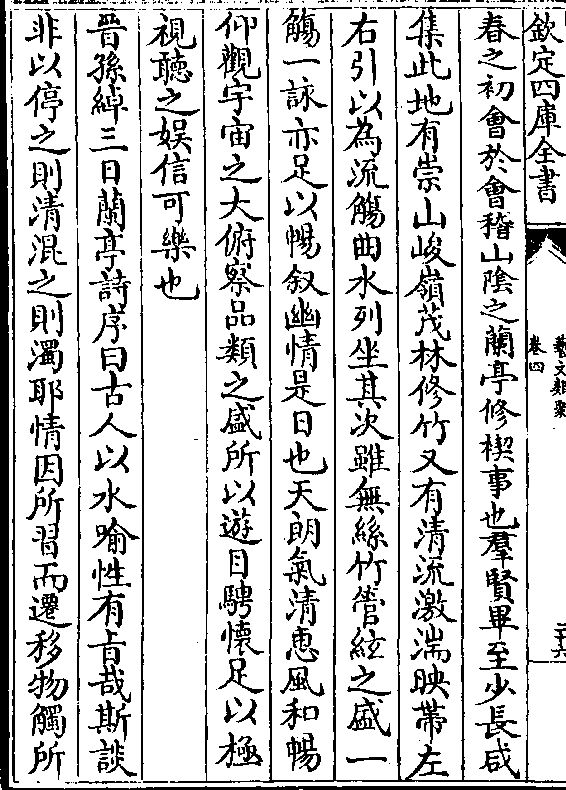 欽定四庫全書
藝文類聚
卷四
二十六
春之初會於會稽山陰之蘭亭修禊事也羣賢畢至少長咸
集此地有崇山峻嶺茂林修竹又有清流激湍映帶左
右引以為流觴曲水列坐其次雖無絲竹管絃之盛一
觴一詠亦足以暢叙幽情是日也天朗氣清惠風和暢
仰觀宇宙之大俯察品類之盛所以遊目騁懷足以極
視聽之娱信可樂也
晉孫綽三日蘭亭詩序曰古人以水喻性有旨哉斯談
非以停之則清混之則濁耶情因所習而遷移物觸所